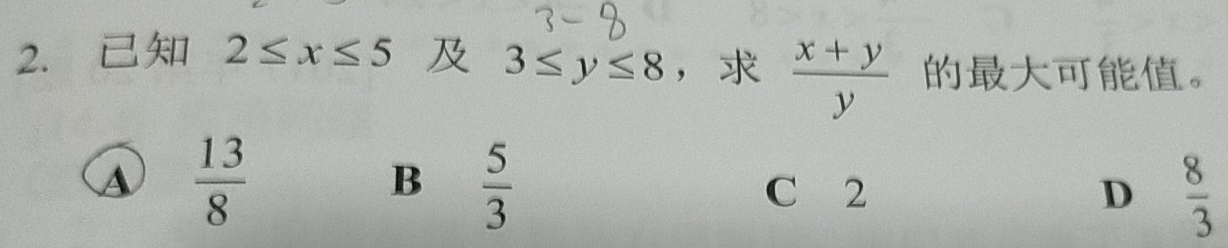 3-8
2. 已知 2≤x≤5 及 3≤y≤8，求 \frac{x+y}{y} 的最大可能值。
A \frac{13}{8} B \frac{5}{3} C 2 D \frac{8}{3}